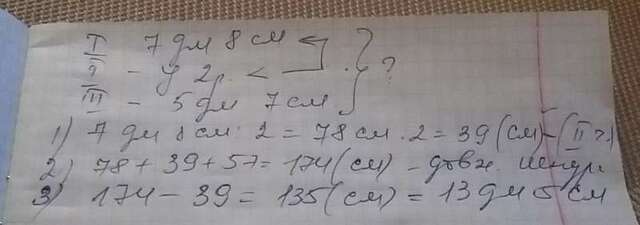 I 7 дм 8 см
II - у 2 р. <
III - 5 дм 7 см } ?
1) 7 дм 8 см : 2 = 78 см : 2 = 39 (см) - (II
2) 78 + 39 + 57 = 174 (см) - довж.
3) 174 - 39 = 135 (см) = 13 дм 5 см